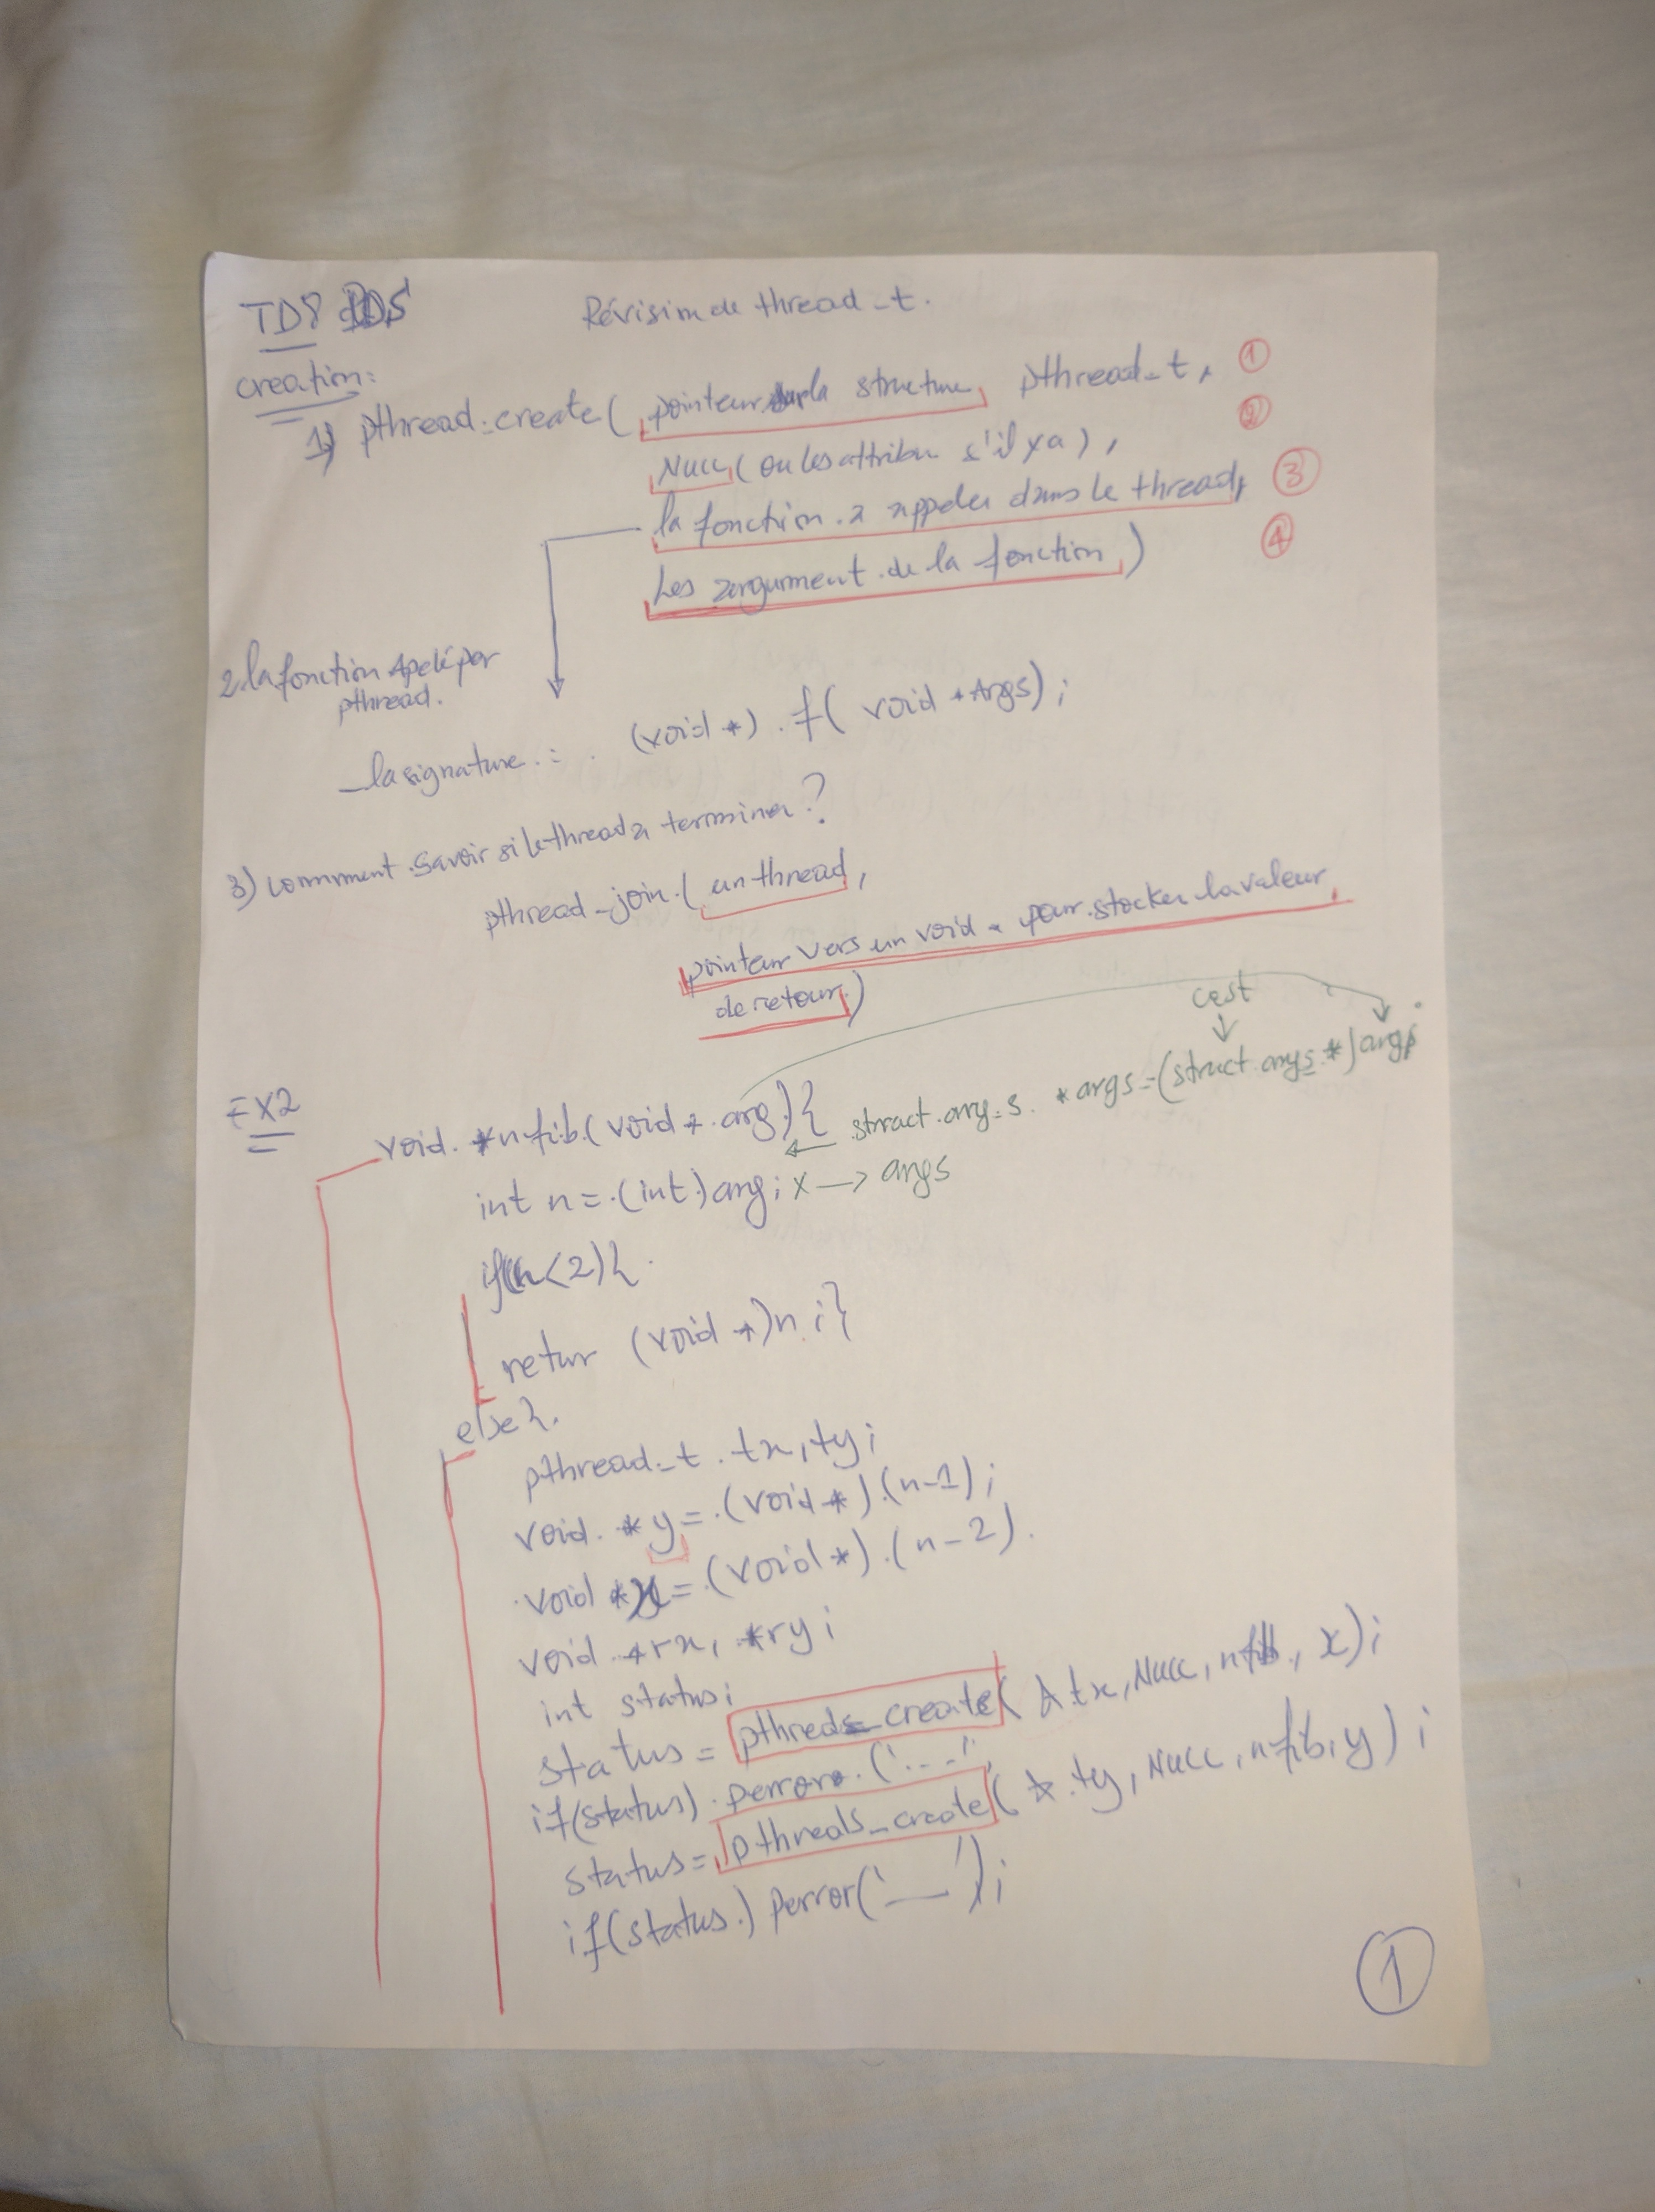 TD8 PDS
Révision de thread_t.
creation:
1) pthread_create( pointeur sur la structure, pthread_t, ①
NULL (ou les attribu s'il y a), ②
la fonction a appeler dans le thread, ③
Les argument de la fonction) ④
2. la fonction apelé par
pthread.
_ la signature : (void *) f( void *Args);
3) comment savoir si le thread a terminer?
pthread_join ( un thread,
pointeur vers un void * pour stocker la valeur
de retour)
cast
EX2
void *nfib( void * arg){ struct arg_s *args=(struct args *)arg;
int n = (int) arg; x → args
if(n<2){
retur (void *)n;}
else{
pthread_t tx, ty;
void *y = (void *) (n-1);
void *x = (void *) (n-2).
void *rx, *ry;
int status;
status = pthreds_create( & tx, NULL, nfib, x);
if(status) perror ('...'
status = pthreads_create( & ty, NULL, nfib, y);
if(status) perror('__');
1